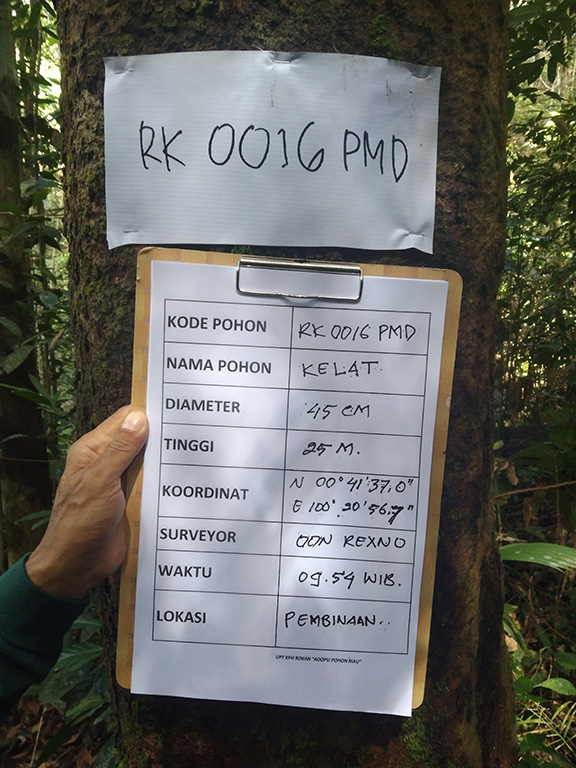 RK 0016 PMD
KODE POHON RK 0016 PMD
NAMA POHON KELAT.
DIAMETER 45 CM
TINGGI 25 M.
KOORDINAT N 00° 41' 37,0"
E 100°. 20' 56,7"
SURVEYOR DON REXNO
WAKTU 09.54 WIB.
LOKASI PEMBINAAN..
UPT KPH ROKAN "ADOPSI POHON RIAU"